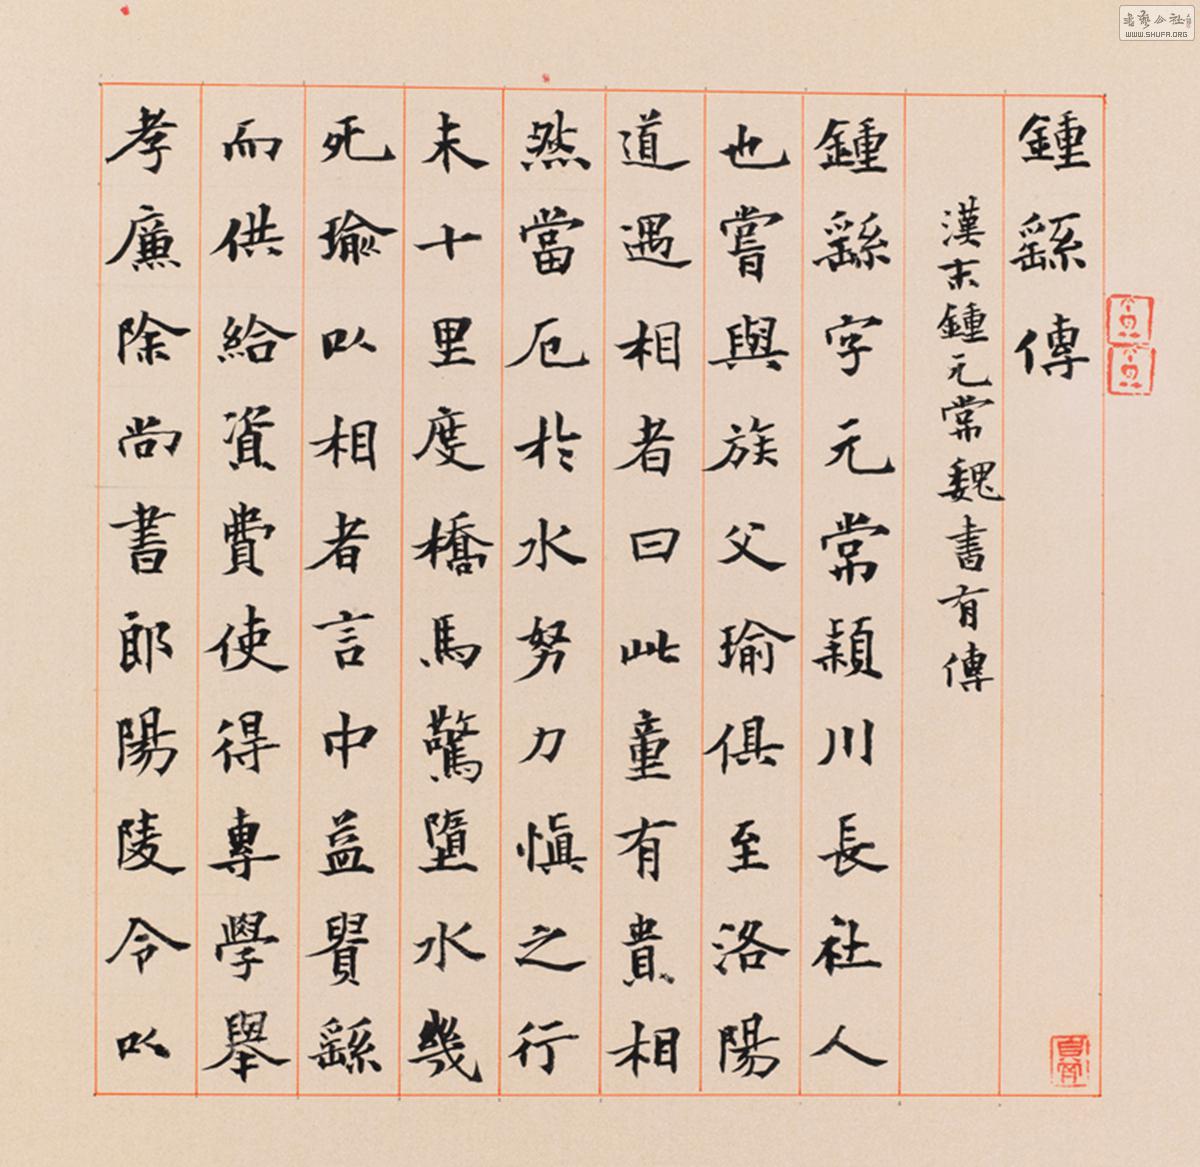 鍾繇傳
漢末鍾元常魏書有傳
鍾繇字元常潁川長社人
也嘗與族父瑜俱至洛陽
道遇相者曰此童有貴相
然當厄於水努力慎之行
未十里度橋馬驚墮水幾
死瑜以相者言中益貴繇
而供給資費使得專學舉
孝廉除尚書郎陽陵令以
書藝公社
WWW.SHUFA.ORG